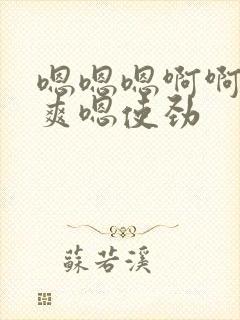 嗯嗯嗯啊啊
爽嗯使劲
蘇若溪